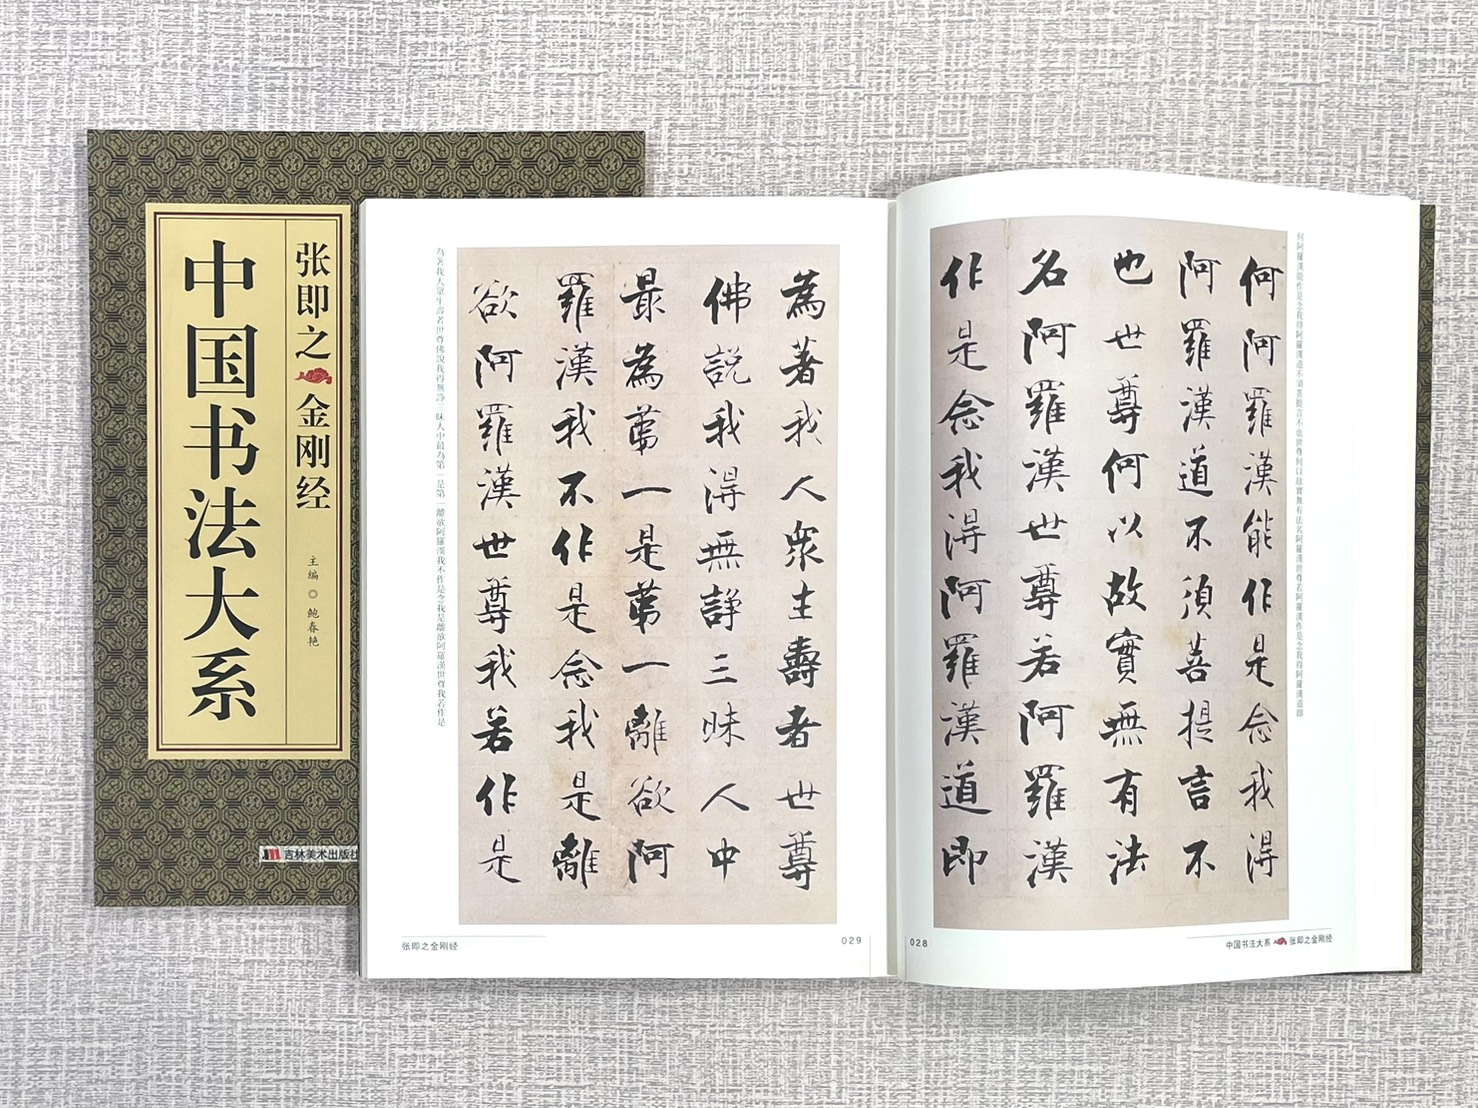 张即之金刚经
中国书法大系
主编◎鲍春艳
吉林美术出版社
何阿羅漢能作是念我得阿羅漢道不須菩提言不也世尊何以故實無有法名阿羅漢世尊若阿羅漢作是念我得阿羅漢道即
何阿羅漢能作是念我得
阿羅漢道不須菩提言不
也世尊何以故實無有法
名阿羅漢世尊若阿羅漢
作是念我得阿羅漢道即
028
中国书法大系 张即之金刚经
為著我人眾生壽者世尊
佛說我得無諍三昧人中
最為第一是第一離欲阿
羅漢我不作是念我是離
欲阿羅漢世尊我若作是
為著我人眾生壽者世尊佛說我得無諍三昧人中最為第一是第一離欲阿羅漢我不作是念我是離欲阿羅漢世尊我若作是
张即之金刚经
029